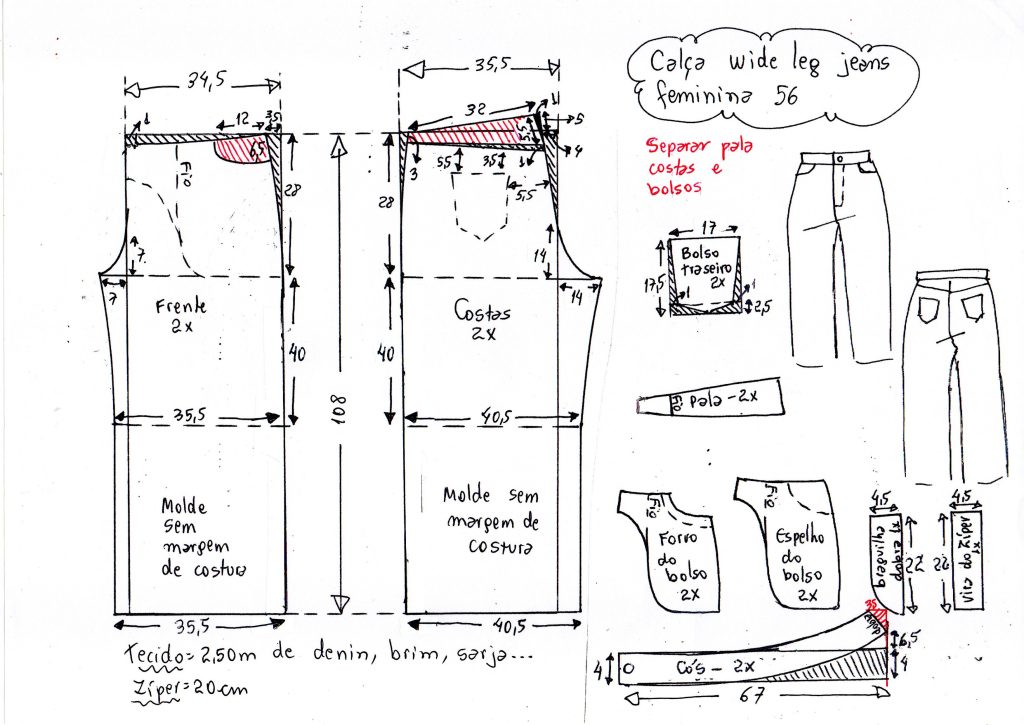 Calça wide leg jeans
feminina 56
Separar pala
costas e
bolsos
34,5
1
12
3,5
6,5
Fio
28
7
7
Frente
2x
40
35,5
Molde
sem
margem
de costura
35,5
108
35,5
32
1
5
5,5
4
3
5,5
3,5
1
5,5
28
14
14
Costas
2x
40
40,5
Molde sem
margem de
costura
40,5
17
Bolso
traseiro
2x
17,5
1
1
2,5
Fio
pala - 2x
Fio
Forro
do
bolso
2x
Fio
Espelho
do
bolso
2x
4,5
braguilha
dobra 1x
22
4,5
Vira do Zíper
1x
22
3,5
dobra
6,5
4
Cós - 2x
4
67
Tecido = 2,50m de denin, brim, sarja...
Zíper = 20cm